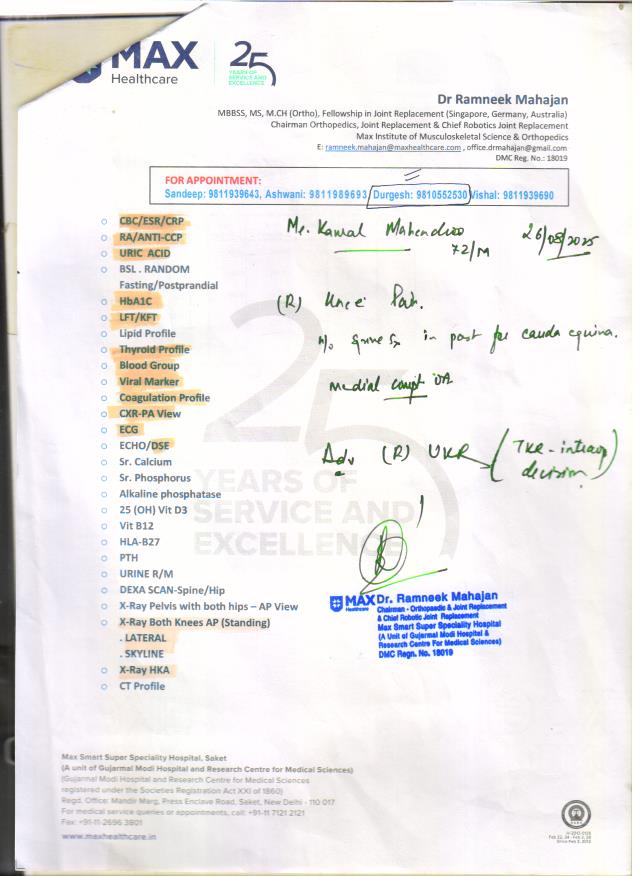 MAX
Healthcare
25
YEARS OF
SERVICE AND
EXCELLENCE
Dr Ramneek Mahajan
MBBSS, MS, M.CH (Ortho), Fellowship in Joint Replacement (Singapore, Germany, Australia)
Chairman Orthopedics, Joint Replacement & Chief Robotics Joint Replacement
Max Institute of Musculoskeletal Science & Orthopedics
E: ramneek.mahajan@maxhealthcare.com , office.drmahajan@gmail.com
DMC Reg. No.: 18019
FOR APPOINTMENT:
Sandeep: 9811939643, Ashwani: 9811989693, Durgesh: 9810552530, Vishal: 9811939690
Mr. Kamal Mahendroo 26/08/2025
72/M
CBC/ESR/CRP
RA/ANTI-CCP
URIC ACID
BSL . RANDOM
Fasting/Postprandial
HbA1C
LFT/KFT
Lipid Profile
Thyroid Profile
Blood Group
Viral Marker
Coagulation Profile
CXR-PA View
ECG
ECHO/DSE
Sr. Calcium
Sr. Phosphorus
Alkaline phosphatase
25 (OH) Vit D3
Vit B12
HLA-B27
PTH
URINE R/M
DEXA SCAN-Spine/Hip
X-Ray Pelvis with both hips – AP View
X-Ray Both Knees AP (Standing)
. LATERAL
. SKYLINE
X-Ray HKA
CT Profile
(R) Knee Pain.
H/o Spine Sx in past for cauda equina.
Medial compt OA
Adv (R) UKR (TKR - intraop
decision)
25
YEARS OF
SERVICE AND
EXCELLENCE
MAX
Healthcare
Dr. Ramneek Mahajan
Chairman - Orthopaedic & Joint Replacement
& Chief Robotic Joint Replacement
Max Smart Super Speciality Hospital
(A Unit of Gujarmal Modi Hospital &
Research Centre For Medical Sciences)
DMC Regn. No. 18019
Max Smart Super Speciality Hospital, Saket
(A unit of Gujarmal Modi Hospital and Research Centre for Medical Sciences)
(Gujarmal Modi Hospital and Research Centre for Medical Sciences
registered under the Societies Registration Act XXI of 1860)
Regd. Office: Mandir Marg, Press Enclave Road, Saket, New Delhi - 110 017
For medical service queries or appointments, call: +91-11 7121 2121
Fax: +91-11-2696 3801
www.maxhealthcare.in